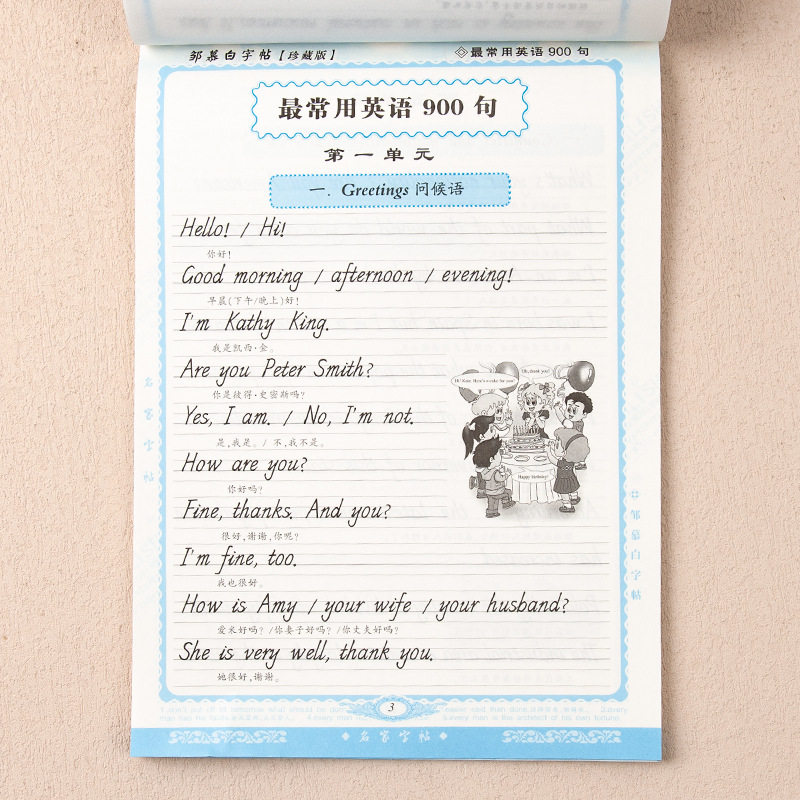 邹慕白字帖【珍藏版】
◇最常用英语900句
最常用英语 900 句
第一单元
一. Greetings 问候语
Hello! / Hi!
你好!
Good morning / afternoon / evening!
早晨(下午/晚上)好!
I'm Kathy King.
我是凯西·金。
Are you Peter Smith?
你是彼得·史密斯吗?
Yes, I am. / No, I'm not.
是,我是。/ 不,我不是。
How are you?
你好吗?
Fine, thanks. And you?
很好,谢谢,你呢?
I'm fine, too.
我也很好。
How is Amy / your wife / your husband?
爱米好吗? /你妻子好吗? /你丈夫好吗?
She is very well, thank you.
她很好,谢谢。
Hi! Kate. Here's a cake for you!
Oh, thank you!
Happy birthday!
名家字帖
邹慕白字帖
3
easier said than done
3.every
man is the architect of his own fortune
名家字帖